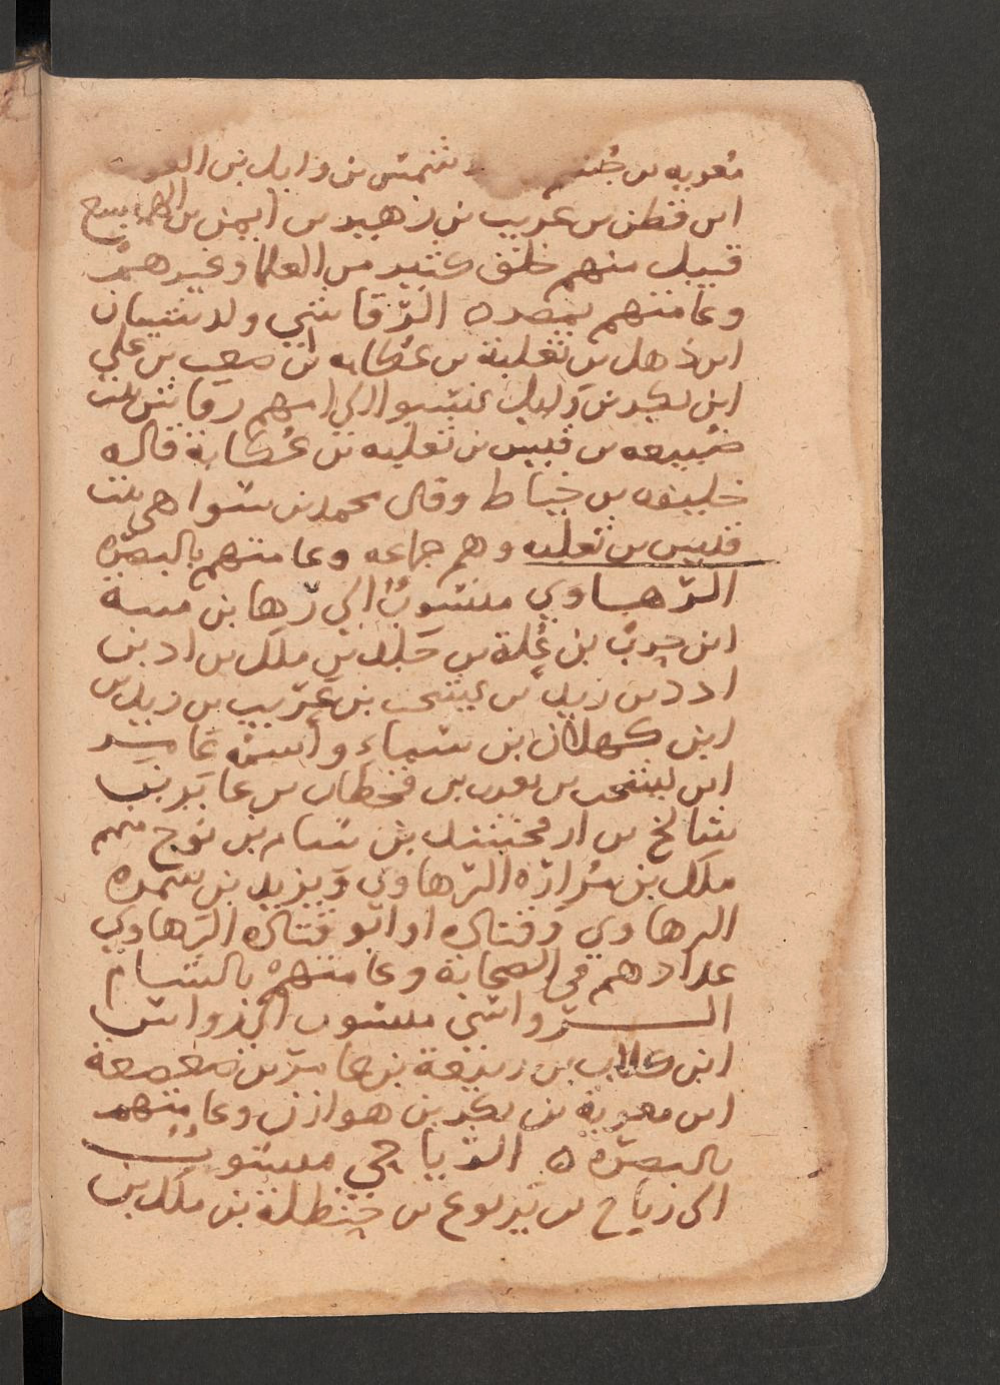 معويه بن جشم شمس بن وايل بن
ابن قطن بن عريب بن زهير بن ايمن بن الهميسع
قبيل منهم خلق كثير من العلما وغيرهم
وعامتهم بمصر ه الرَّقاشي ولد شيبان
ابن ذهل بن ثعلبة بن عكابه بن صعب بن علي
ابن بكر بن وايل ينتسبوا الى امهم رقاش بنت
ضُبيعه بن قيس بن ثعلبه بن عُكابة قاله
خليفه بن خياط وقال محمد بن سوا هي بنت
قيس بن ثعلبه وهم جماعه وعامتهم بالبصره
الرّهاوي منسوبٌ الى رُها بن منبه
ابن حرب بن عُلة بن جَلد بن ملك بن اد بن
ادد بن زيد بن يشجب بن عَريب بن زيد بن
ابن كهلان بن سباء واسمه عامر
ابن يشجب بن يعرب بن قحطان بن عابر بن
شالخ بن ارفخشذ بن سام بن نوح منهم
ملك بن مُرارَه الرّهاوي وَيزيد بن شجره
الرهاوي وَقتاده او ابو قتاده الرَهاوي
عدادهم في الصحابة وعامتهُمْ بالشام
الرّواسي منسوب الى رواس
ابن كلاب بن ربيعة بن عامر بن صعصعة
ابن معوية بن بكر بن هوازن وعامتهم
بالبصرَه ه الرّياحي منسوب
الى رياح بن يَربوع بن حنظلة بن ملك بن